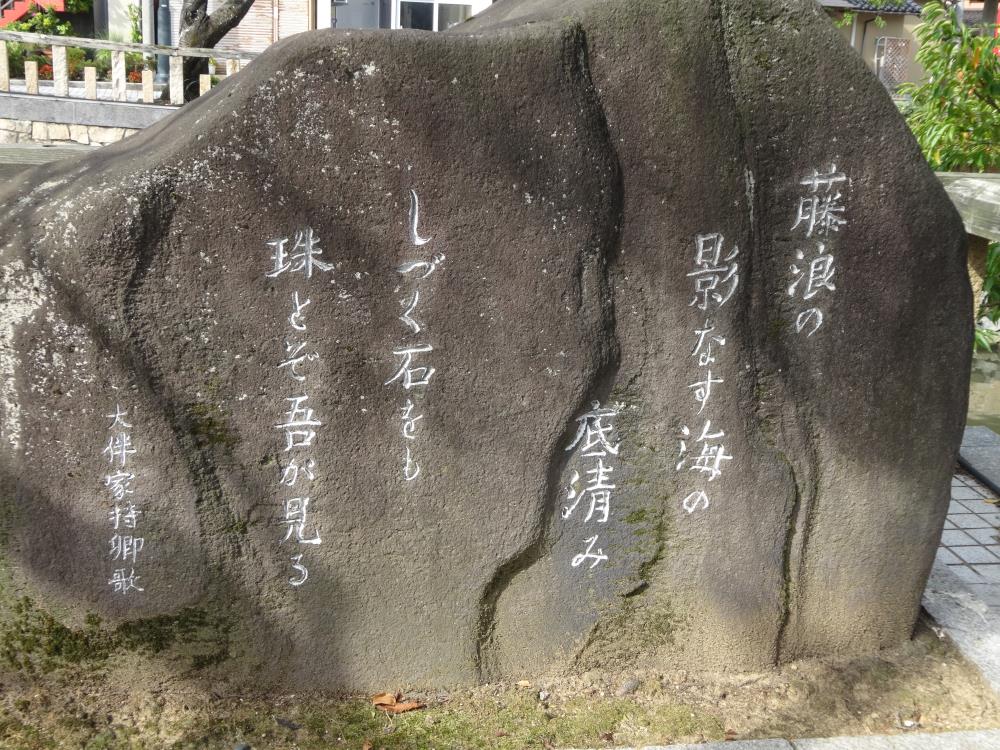 藤浪の
影なす海の
底清み
しづく石をも
珠とぞ吾が見る
大伴家持卿歌